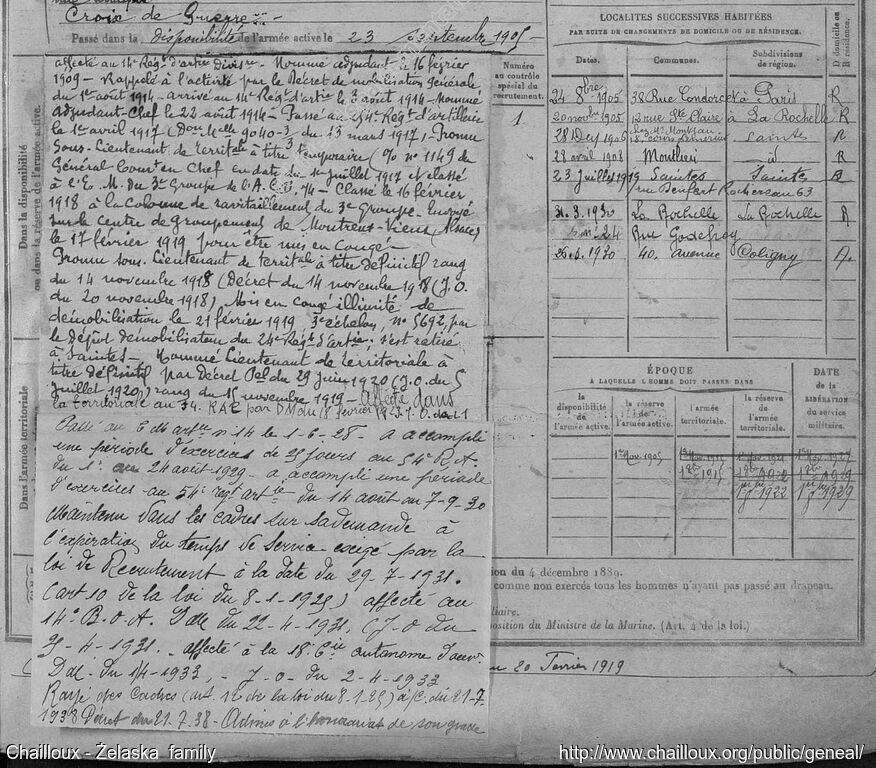 Croix de Guerre
Passé dans la disponibilité de l'armée active le 23 Septembre 1905
affecté au 14e Régt d'artie Divisre - Nommé adjudant le 16 février
1909 - Rappelé à l'activité par le Décret de mobilisation Générale
du 1er août 1914 - arrivé au 14e Régt d'artie le 3 août 1914 - Nommé
adjudant-Chef le 22 août 1914 - Passé au 54e Régt d'artillerie
le 1er avril 1917 (Don Melle 9040-3 du 13 mars 1917) - Promu
Sous-Lieutenant de territale à titre temporaire (No 1149 du
Général Comt en Chef en date du 1er juillet 1917 et classé
à l'E. M. du 3e Groupe de l'A.C.D. 74 - Classé le 16 février
1918 à la Colonne de ravitaillement du 3e Groupe - Envoyé
sur le Centre de Groupement de Montreux-Vieux (Alsace)
le 17 février 1919 pour être mis en Congé -
Promu sous-Lieutenant de territale à titre définitif rang
du 14 novembre 1918 (Décret du 14 novembre 1918 (J.O.
du 20 novembre 1918) Mis en congé illimité de
démobilisation le 21 février 1919 3e échelon, no 5692, par
le dépôt démobilisateur du 24e Régt d'artie, s'est retiré
à Saintes - Nommé Lieutenant de territoriale à
titre définitif par Décret Pel du 29 juin 1920 (J.O. du 5
juillet 1920) rang du 15 novembre 1919 - Affecté dans
la territoriale au 34. RAC par DM du 8 février J.O. du
Passé au C M artie no 14 le 1-6-28 - a accompli
une période d'exercices de 25 jours au 54e R.A.
du 1er au 24 août 1929 - a accompli une période
d'exercices au 54e régt artie du 14 août au 7-9-30
Maintenu dans les cadres sur sa demande à
l'expiration du temps de service exigé par la
loi de Recrutement à la date du 29-7-1931.
(art 10 de la loi du 8-1-1925) affecté au
14e B.O.A. Dle du 22-4-1931, (J-O du
25-4-1931. - affecté à la 18e Cie autonome d'ouvr.
Dal. du 1/4-1933, - J-O- du 2-4-1933
Rayé des Cadres (art 12 de la loi du 8-1-25) à/c. du 21-7-
1938 Décret du 21.7.38 - Admis à l'honorariat de son grade
Dans la disponibilité
ou dans la réserve de l'armée active.
Dans l'armée territoriale
Numéro
au contrôle
spécial du
recrutement.
1
LOCALITÉS SUCCESSIVES HABITÉES
PAR SUITE DE CHANGEMENTS DE DOMICILE OU DE RÉSIDENCE.
Dates. Communes. Subdivisions de région. D domicile ou R résidence.
24 8bre 1905 38 Rue Condorcet à Paris R
20 novbre 1905 12 rue Ste Claire à La Rochelle R
28 Dec 1906 Saintes R
28 avril 1908 Montlieu id R
23 Juillet 1919 Saintes Saintes
rue Denfert Rochereau 63
31.3.1930 La Rochelle La Rochelle R
24 Rue Godefroy
26.6.1930 40. Avenue Coligny
ÉPOQUE
À LAQUELLE L'HOMME DOIT PASSER DANS
DATE
de la
LIBÉRATION
du service
militaire.
la disponibilité de l'armée active. la réserve de l'armée active. l'armée territoriale. la réserve de l'armée territoriale.
1er Nov. 1905
1 8bre 1915 1 8bre 1922
1922 1929
tion du 4 décembre 1889.
comme non exercés tous les hommes n'ayant pas passé au drapeau.
liaire.
position du Ministre de la Marine. (Art. 4 de la loi.)
20 Fevrier 1919
Chailloux - Żelaska family
http://www.chailloux.org/public/geneal/